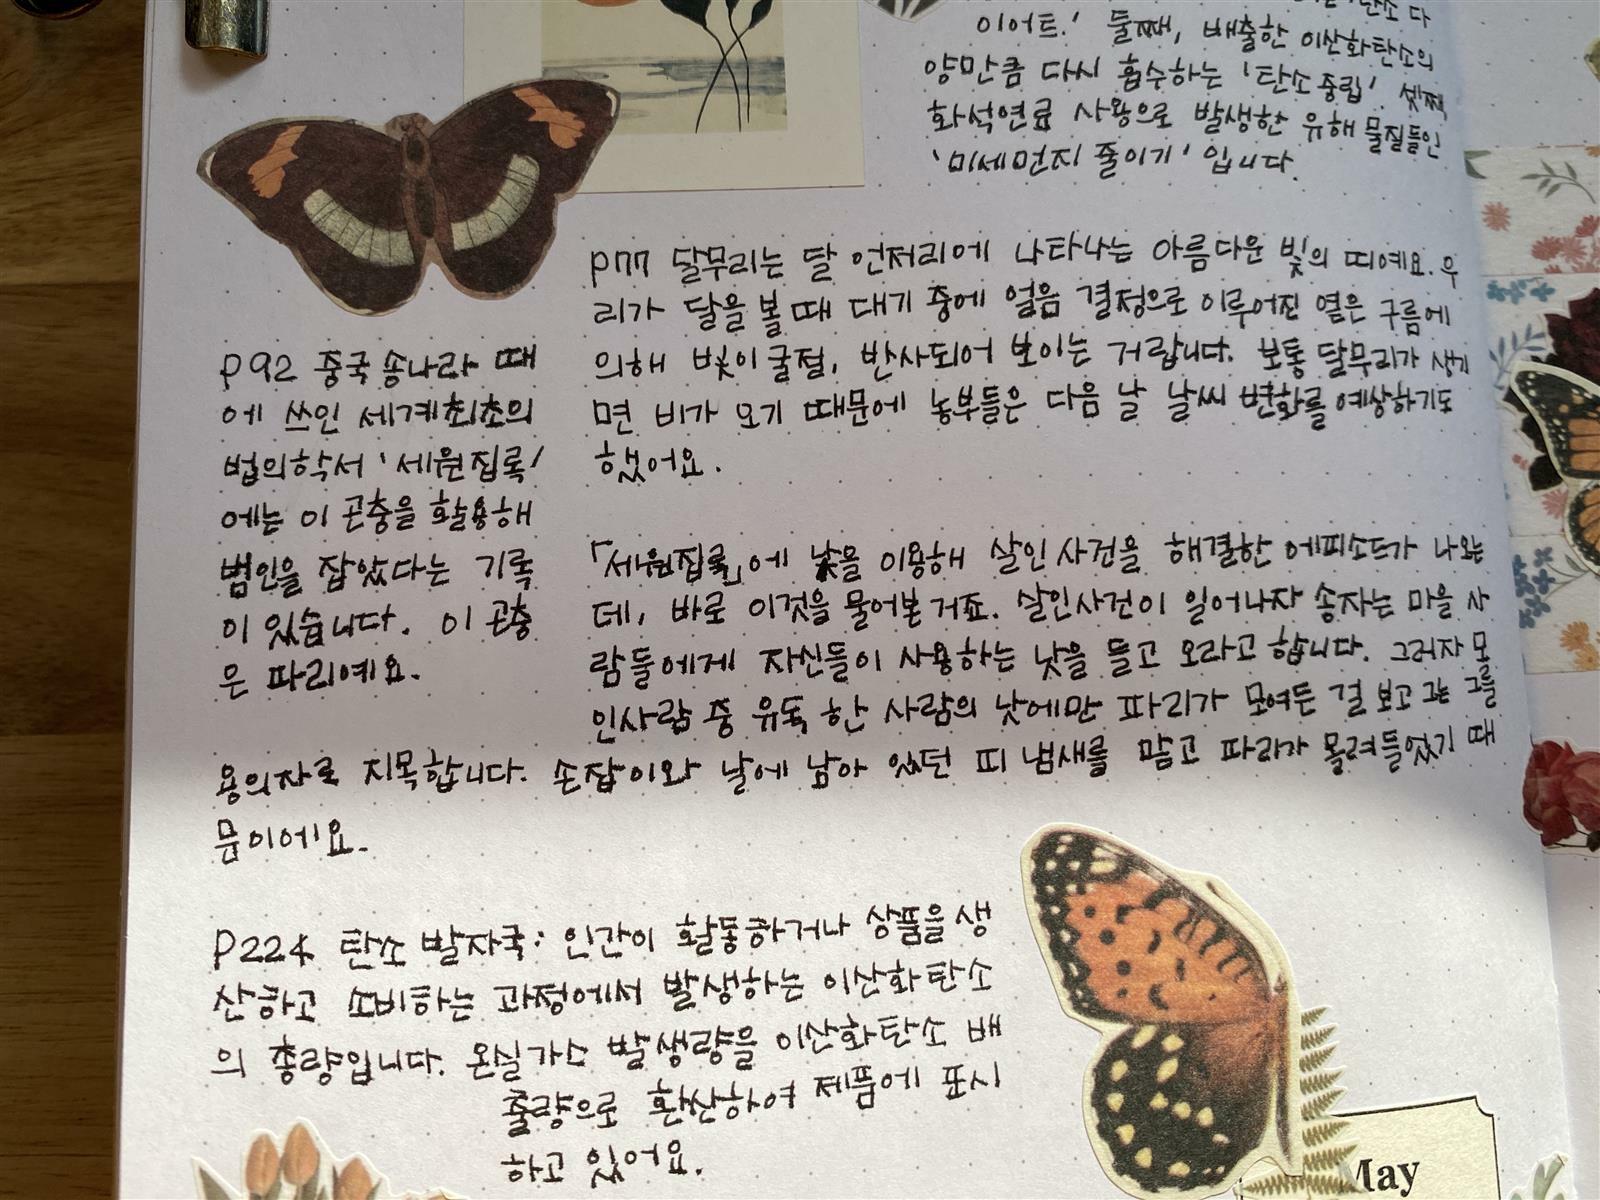 탄소 다
이어트.' 둘째, 배출한 이산화탄소의
양만큼 다시 흡수하는 '탄소중립'. 셋째,
화석연료 사용으로 발생한 유해 물질들인
'미세먼지 줄이기' 입니다.
p77 달무리는 달 언저리에 나타나는 아름다운 빛의 띠예요. 우
리가 달을 볼 때 대기 중에 얼음 결정으로 이루어진 옅은 구름에
의해 빛이 굴절, 반사되어 보이는 거랍니다. 보통 달무리가 생기
면 비가 오기 때문에 농부들은 다음 날 날씨 변화를 예상하기도
했어요.
p92 중국 송나라 때
에 쓰인 세계최초의
법의학서 '세원집록'
에는 이 곤충을 활용해
범인을 잡았다는 기록
이 있습니다. 이 곤충
은 파리예요.
「세원집록」에 낫을 이용해 살인 사건을 해결한 에피소드가 나오는
데, 바로 이것을 물어본 거죠. 살인사건이 일어나자 송자는 마을 사
람들에게 자신들이 사용하는 낫을 들고 오라고 합니다. 그러자 모
인사람 중 유독 한 사람의 낫에만 파리가 모여든 걸 보고 그는 그를
용의자로 지목합니다. 손잡이와 날에 남아 있던 피 냄새를 맡고 파리가 몰려들었기 때
문이에요.
P224 탄소 발자국: 인간이 활동하거나 상품을 생
산하고 소비하는 과정에서 발생하는 이산화탄소
의 총량입니다. 온실가스 발생량을 이산화탄소 배
출량으로 환산하여 제품에 표시
하고 있어요.
May